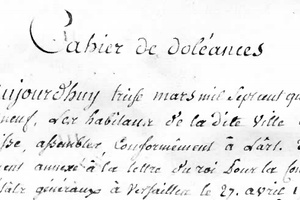 Cahier de doléances
aujourdhuy treise mars mil sept cent qu
neuf, Les habitans de la dite ville
assembler, conformément à l'art.
annexé à la lettre du roi pour la con
généraux à Versailles le 27. avril 1